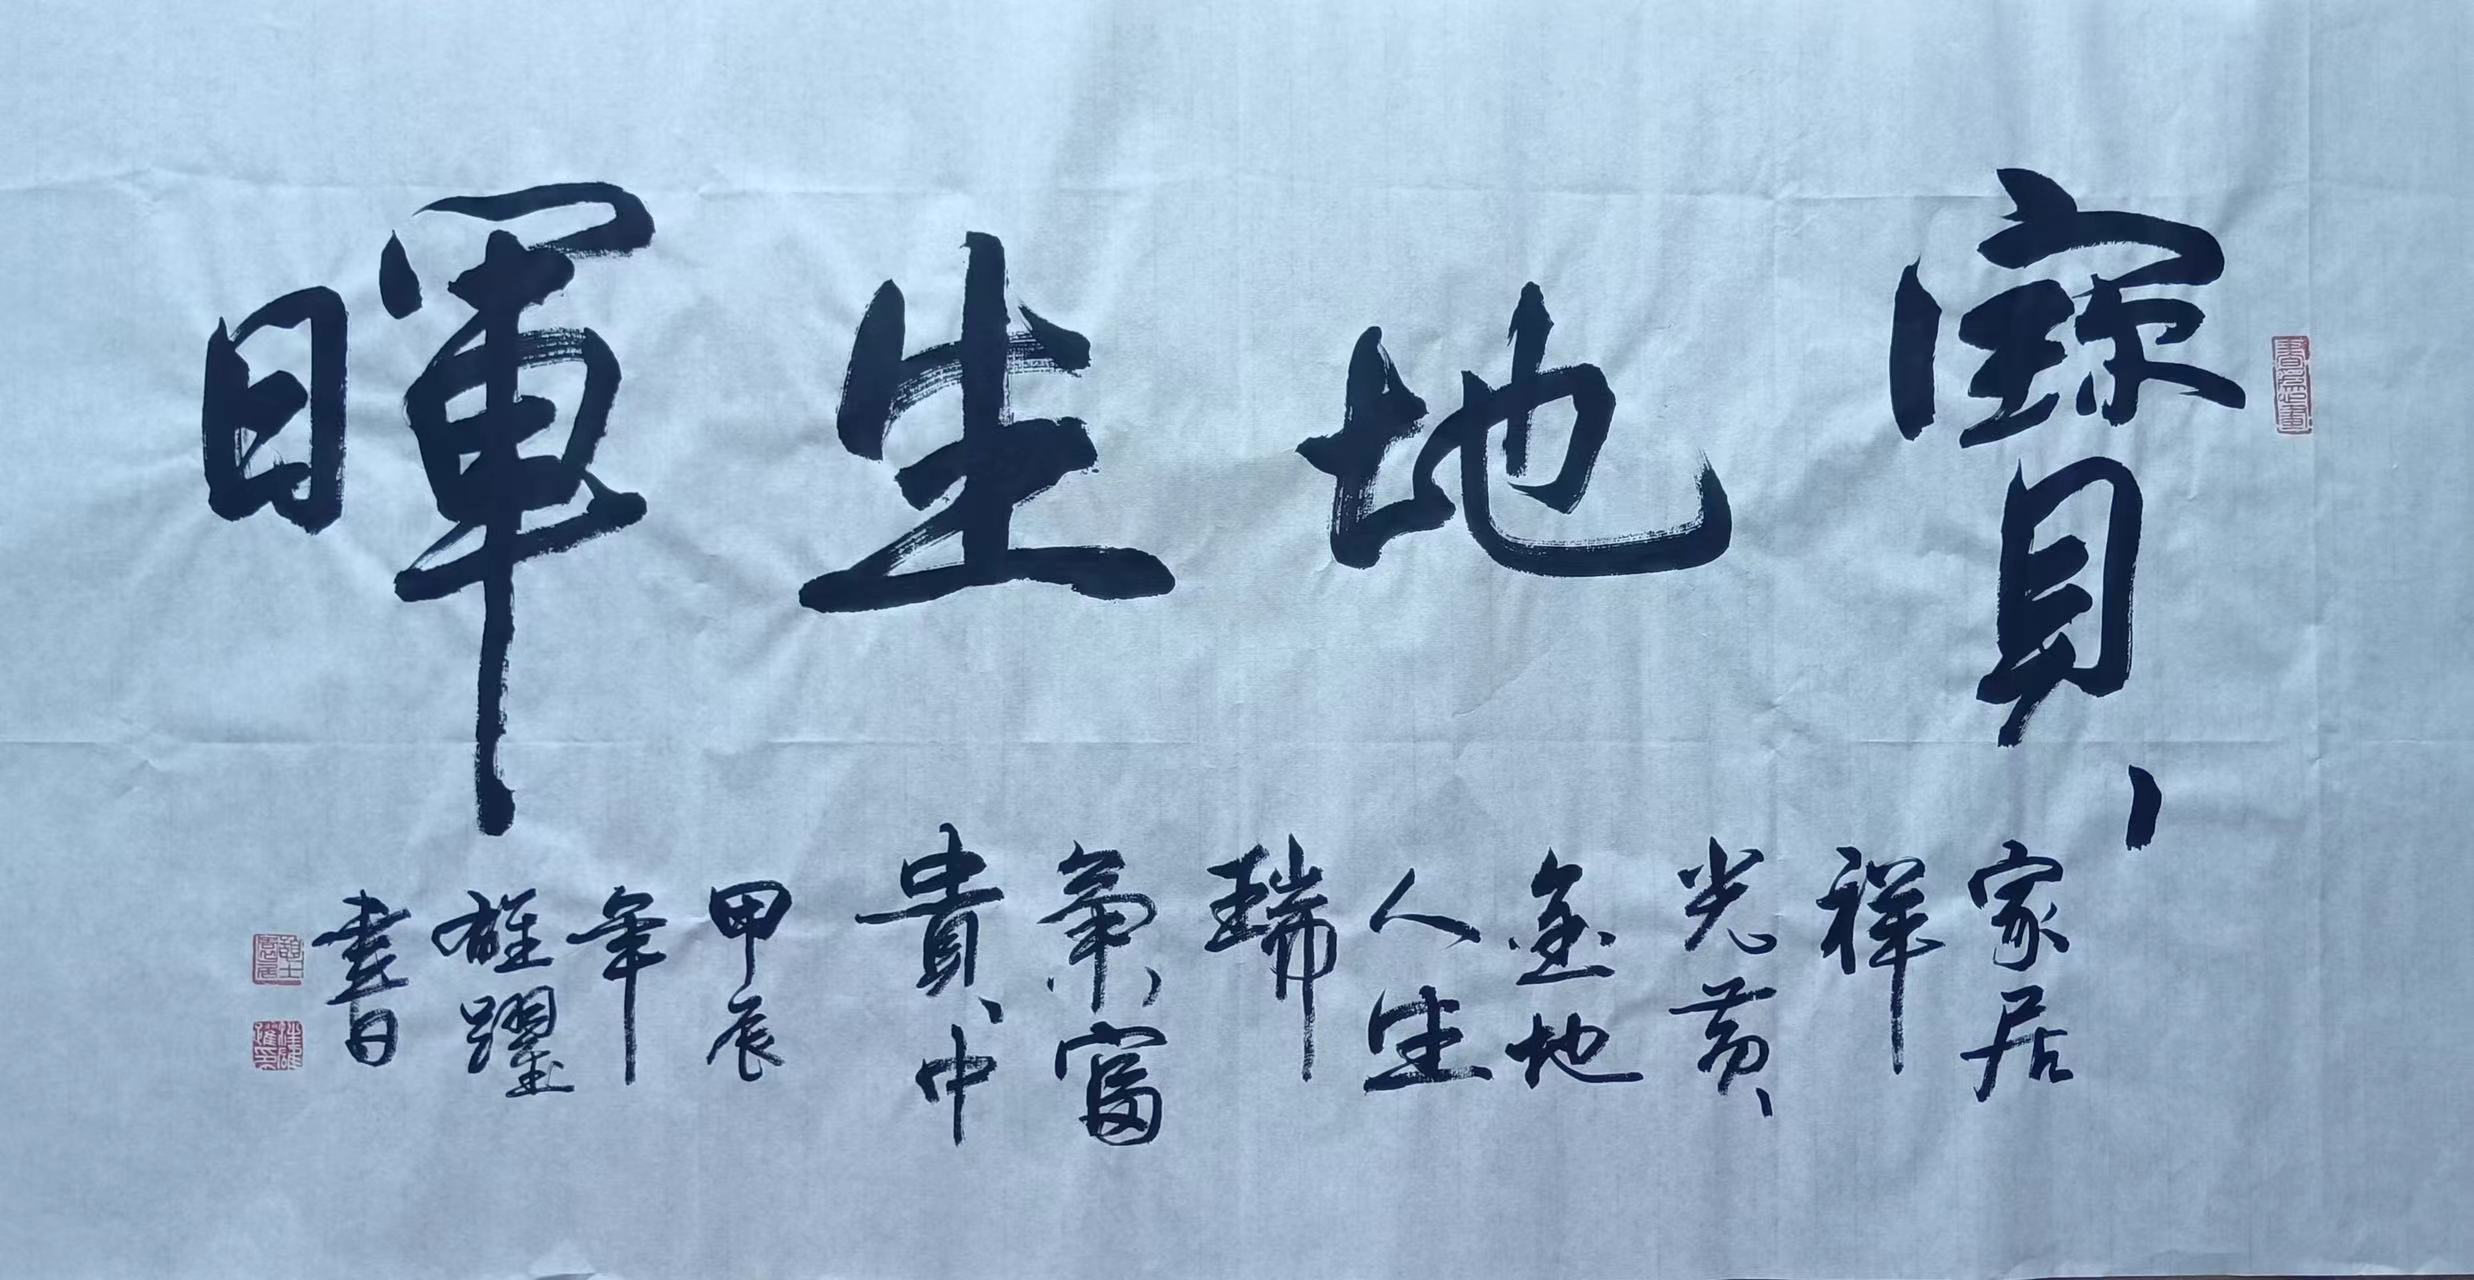 寶地生暉
家居
祥
光黄
金地
人生
瑞
氣富
貴中
甲辰
年
雄躍
書